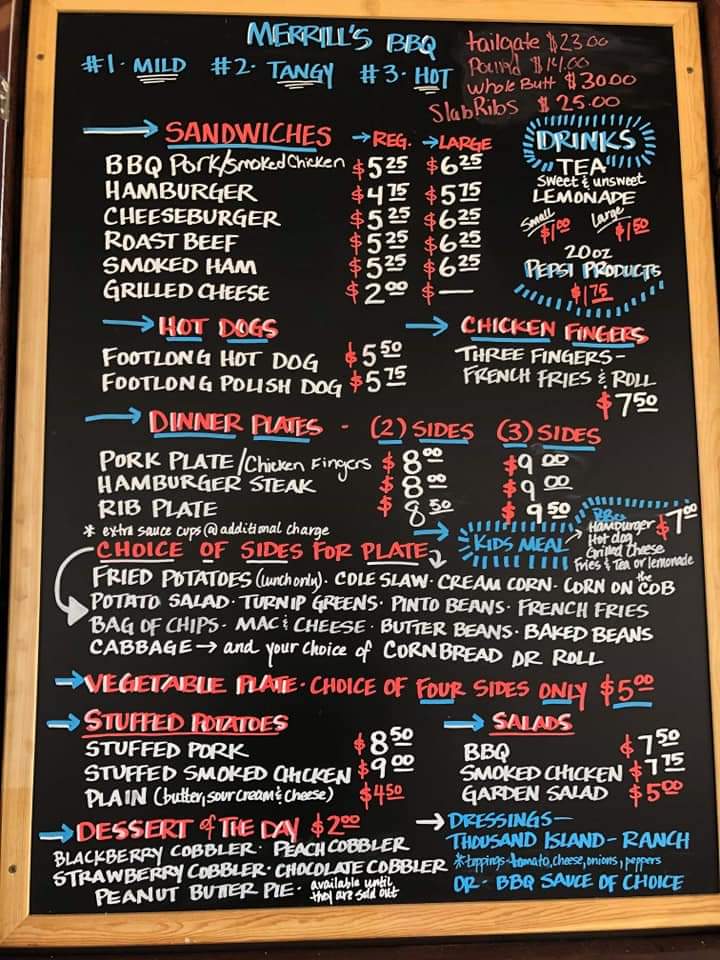 MERRILL'S BBQ
#1 - MILD #2 - TANGY #3 - HOT
tailgate $23.00
Pound $14.00
Whole Butt $30.00
Slab Ribs $25.00
SANDWICHES → REG. → LARGE
BBQ Pork/Smoked Chicken $5 25 $6 25
HAMBURGER $4 75 $5 75
CHEESEBURGER $5 25 $6 25
ROAST BEEF $5 25 $6 25
SMOKED HAM $5 25 $6 25
GRILLED CHEESE $2 00 $—
DRINKS
TEA
sweet & unsweet
LEMONADE
Small $1 00 Large $1 50
20 oz
PEPSI PRODUCTS
$1 75
→ HOT DOGS
FOOTLONG HOT DOG $5 50
FOOTLONG POLISH DOG $5 75
→ CHICKEN FINGERS
THREE FINGERS -
FRENCH FRIES & ROLL
$7 50
→ DINNER PLATES - (2) SIDES (3) SIDES
PORK PLATE/Chicken Fingers $8 00 $9 00
HAMBURGER STEAK $8 00 $9 00
RIB PLATE $8 50 $9 50
* extra sauce cups @ additional charge
→ KIDS MEAL → BBQ
Hamburger $7 00
Hot dog
Grilled Cheese
Fries & Tea or lemonade
CHOICE OF SIDES FOR PLATE
FRIED POTATOES (lunch only) · COLE SLAW · CREAM CORN · CORN ON the COB
POTATO SALAD · TURNIP GREENS · PINTO BEANS · FRENCH FRIES
BAG OF CHIPS · MAC & CHEESE · BUTTER BEANS · BAKED BEANS
CABBAGE → and your choice of CORNBREAD OR ROLL
→ VEGETABLE PLATE - CHOICE OF FOUR SIDES ONLY $5 00
→ STUFFED POTATOES
STUFFED PORK $8 50
STUFFED SMOKED CHICKEN $9 00
PLAIN (butter, sour cream & cheese) $4 50
→ SALADS
BBQ $7 50
SMOKED CHICKEN $7 75
GARDEN SALAD $5 00
→ DESSERT of THE DAY $2 00
BLACKBERRY COBBLER · PEACH COBBLER
STRAWBERRY COBBLER · CHOCOLATE COBBLER
PEANUT BUTTER PIE - available until they are sold out
→ DRESSINGS —
THOUSAND ISLAND - RANCH
* toppings - tomato, cheese, onions, peppers
OR - BBQ SAUCE OF CHOICE